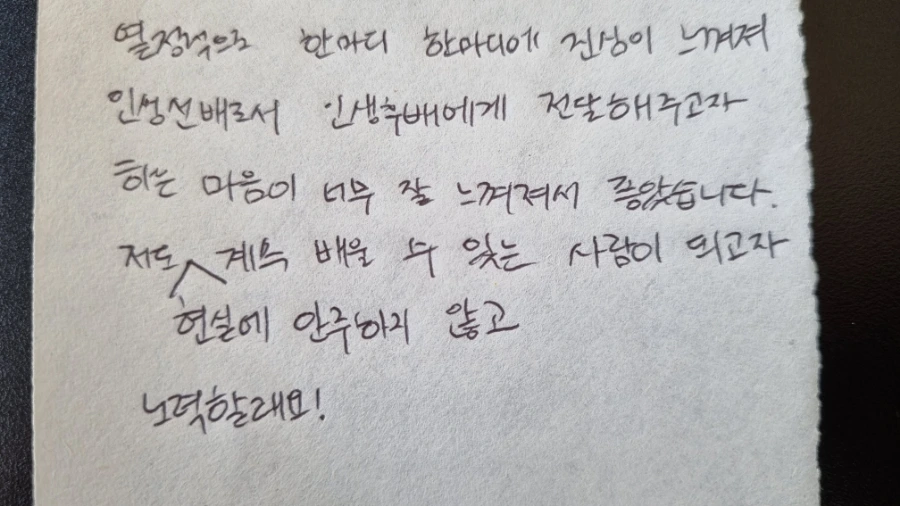 열정적으로 한마디 한마디에 진심이 느껴져
인생선배로서 인생후배에게 전달해주고자
하는 마음이 너무 잘 느껴져서 좋았습니다.
저도 계속 배울 수 있는 사람이 되고자
현실에 안주하지 않고
노력할래요!